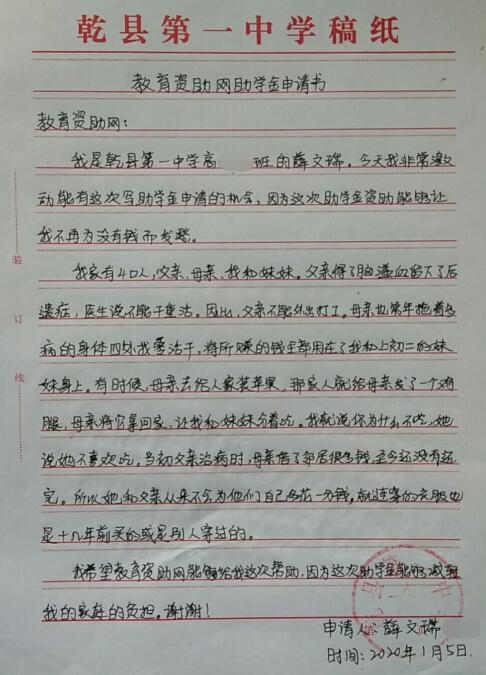 乾县第一中学稿纸
教育资助网助学金申请书
教育资助网：
我是乾县第一中学高 班的薛文瑞。今天我非常激
动能有这次写助学金申请的机会，因为这次助学金资助能够让
我不再为没有钱而发愁。
我家有4口人，父亲、母亲、我和妹妹。父亲得了脑溢血留下了后
遗症，医生说不能干重活。因此，父亲不能外出打工。母亲也常年拖着多
病的身体四外找零活干，将所赚的钱全都用在了我和上初二的妹
妹身上。有时候，母亲去给人家装苹果，那家人就给母亲发了一个鸡
腿，母亲将它拿回家，让我和妹妹分着吃。我就说你为什么不吃，她
说她不喜欢吃。当初父亲治病时，母亲借了邻居很多钱，至今还没有还
完。所以她和父亲从来不会为他们自己多花一分钱，就连穿的衣服也
是十几年前买的或是别人穿过的。
我希望教育资助网能够给我这次帮助，因为这次助学金能够减轻
我的家庭的负担。谢谢！
申请人：薛文瑞
时间：2020年1月5日.
装
订
线